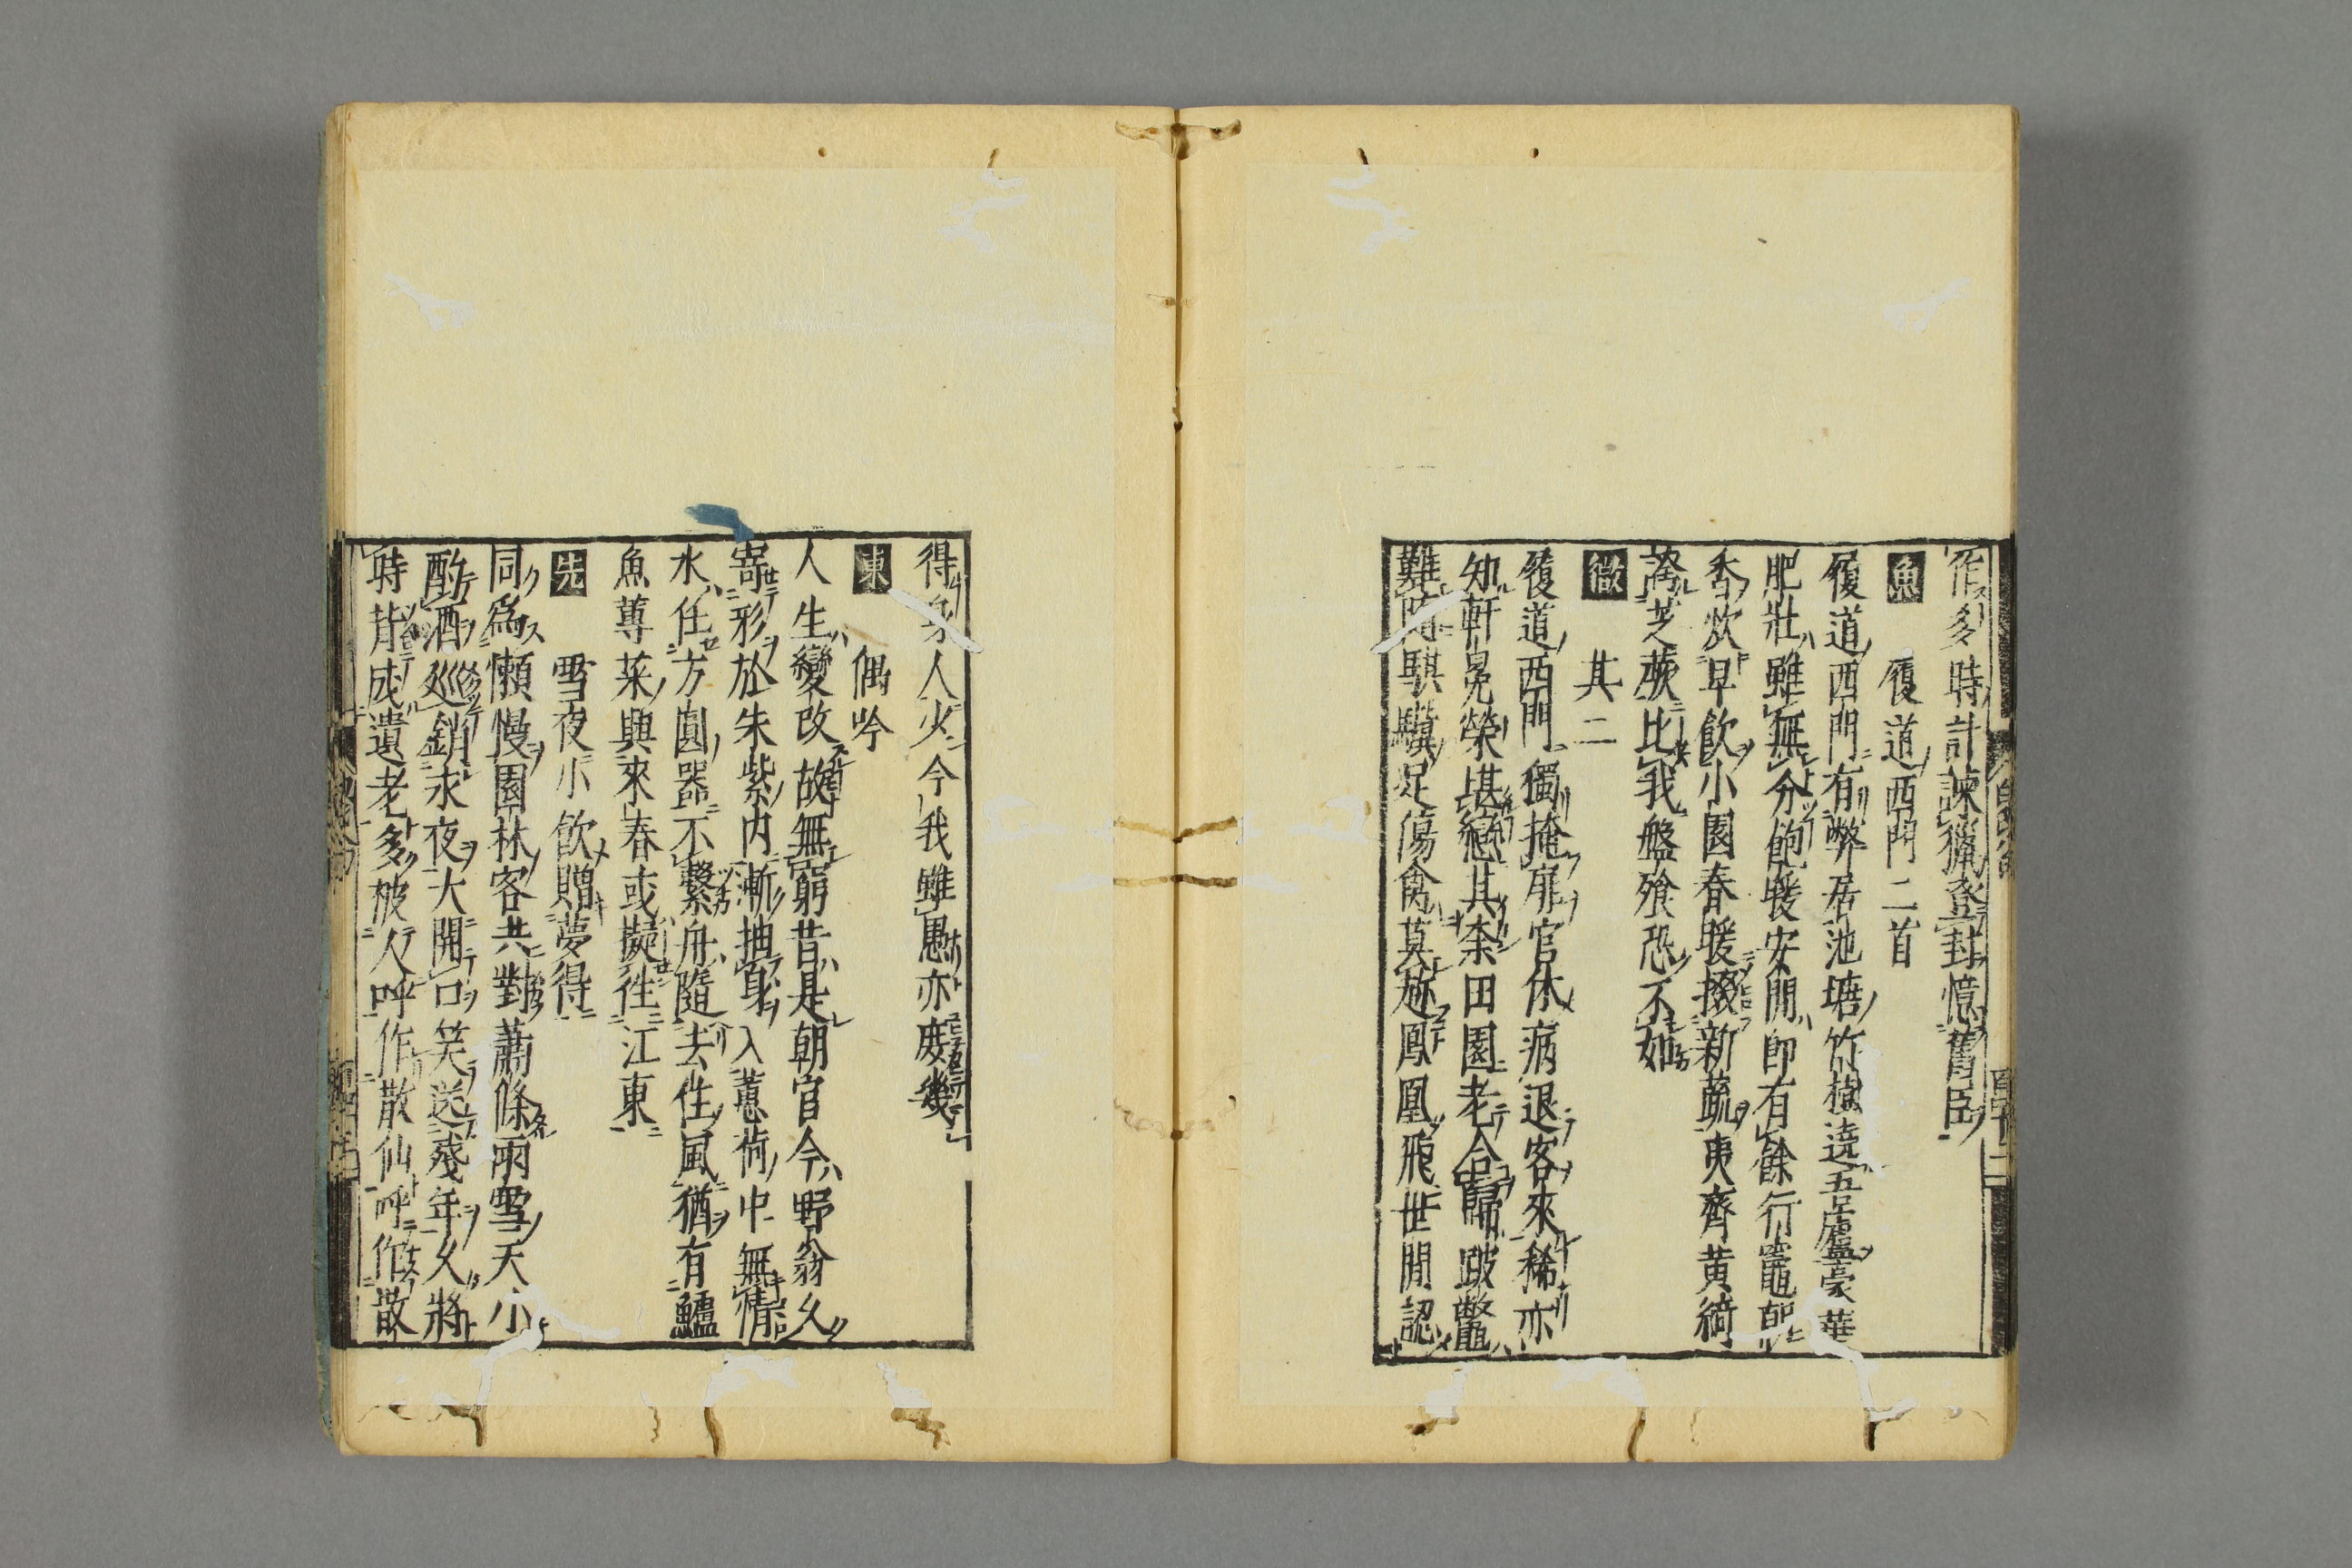 作多時計諫獵登封憶舊臣
魚　履道西門二首
履道西門有弊居池塘竹樹遶吾廬豪華
肥壯雖無分飽暖安閒即有餘行竈朝
香炊早飲小園春暖掇新蔬夷齊黃綺
誇芝蕨比我盤飧恐不如
微　其二
履道西門獨掩扉官休病退客來稀亦
知軒冕榮堪戀其奈田園老合歸跛鼈
難隨騏驥足傷禽莫趂鳳凰飛世間認
得身人少今我雖愚亦庶幾
東　偶吟
人生變改故無窮昔是朝官今野翁久
寄形於朱紫内漸抽身入蕙荷中無情
水任方圓器不繫舟隨去住風猶有鱸
魚蓴菜興來春或擬往江東
先　雪夜小飲贈夢得
同爲懶慢園林客共對蕭條雨雪天小
酌酒巡銷永夜大開口笑送殘年久將
時背成遺老多被人呼作散仙呼作散